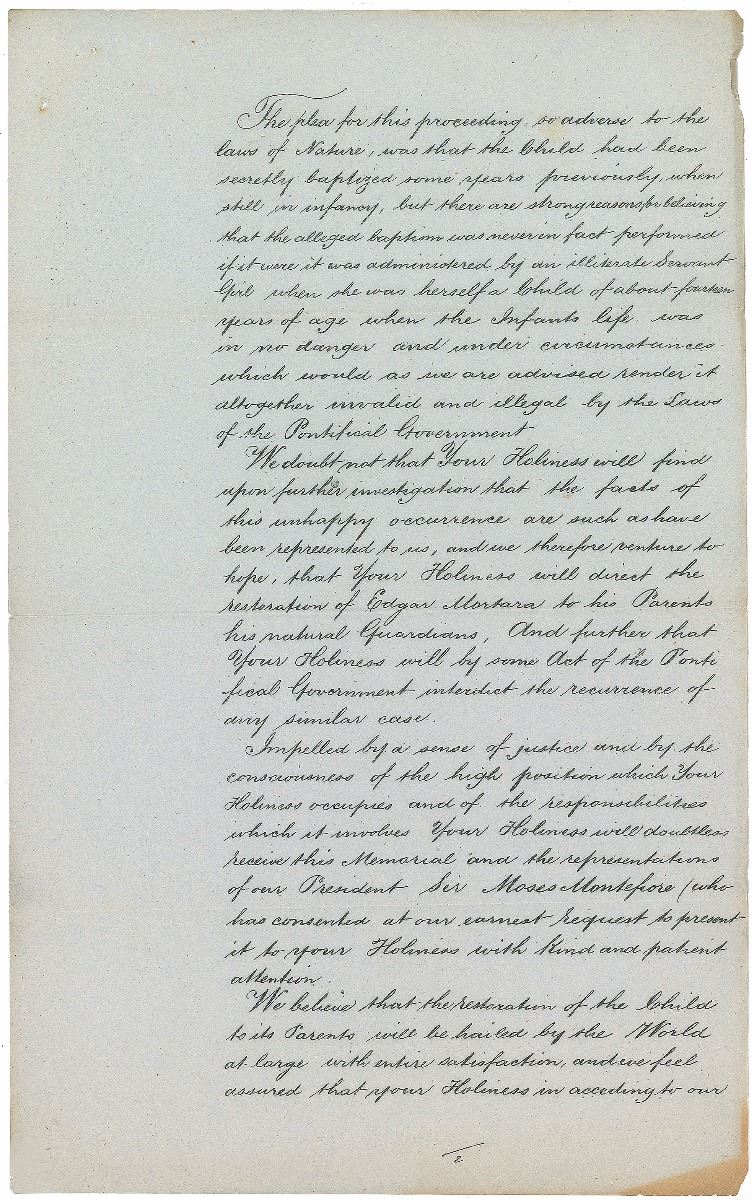 The plea for this proceeding, so adverse to the
laws of Nature, was that the Child had been
secretly baptized some years previously, when
still in infancy, but there are strong reasons for believing
that the alleged baptism was never in fact performed
if it were it was administered by an illiterate Servant
Girl when she was herself a Child of about fourteen
years of age when the Infants life was
in no danger and under circumstances
which would as we are advised render it
altogether invalid and illegal by the Laws
of the Pontifical Government
We doubt not that Your Holiness will find
upon further investigation that the facts of
this unhappy occurrence are such as have
been represented to us, and we therefore venture to
hope, that Your Holiness will direct the
restoration of Edgar Mortara to his Parents
his natural Guardians, And further that
Your Holiness will by some Act of the Ponti
fical Government interdict the recurrence of
any similar case.
Impelled by a sense of justice and by the
consciousness of the high position which Your
Holiness occupies and of the responsibilities
which it involves Your Holiness will doubtless
receive this Memorial and the representations
of our President Sir Moses Montefiore (who
has consented at our earnest request to present
it to your Holiness with kind and patient
attention.
We believe that the restoration of the Child
to its Parents will be hailed by the World
at large with entire satisfaction, and we feel
assured that your Holiness in acceding to our
2